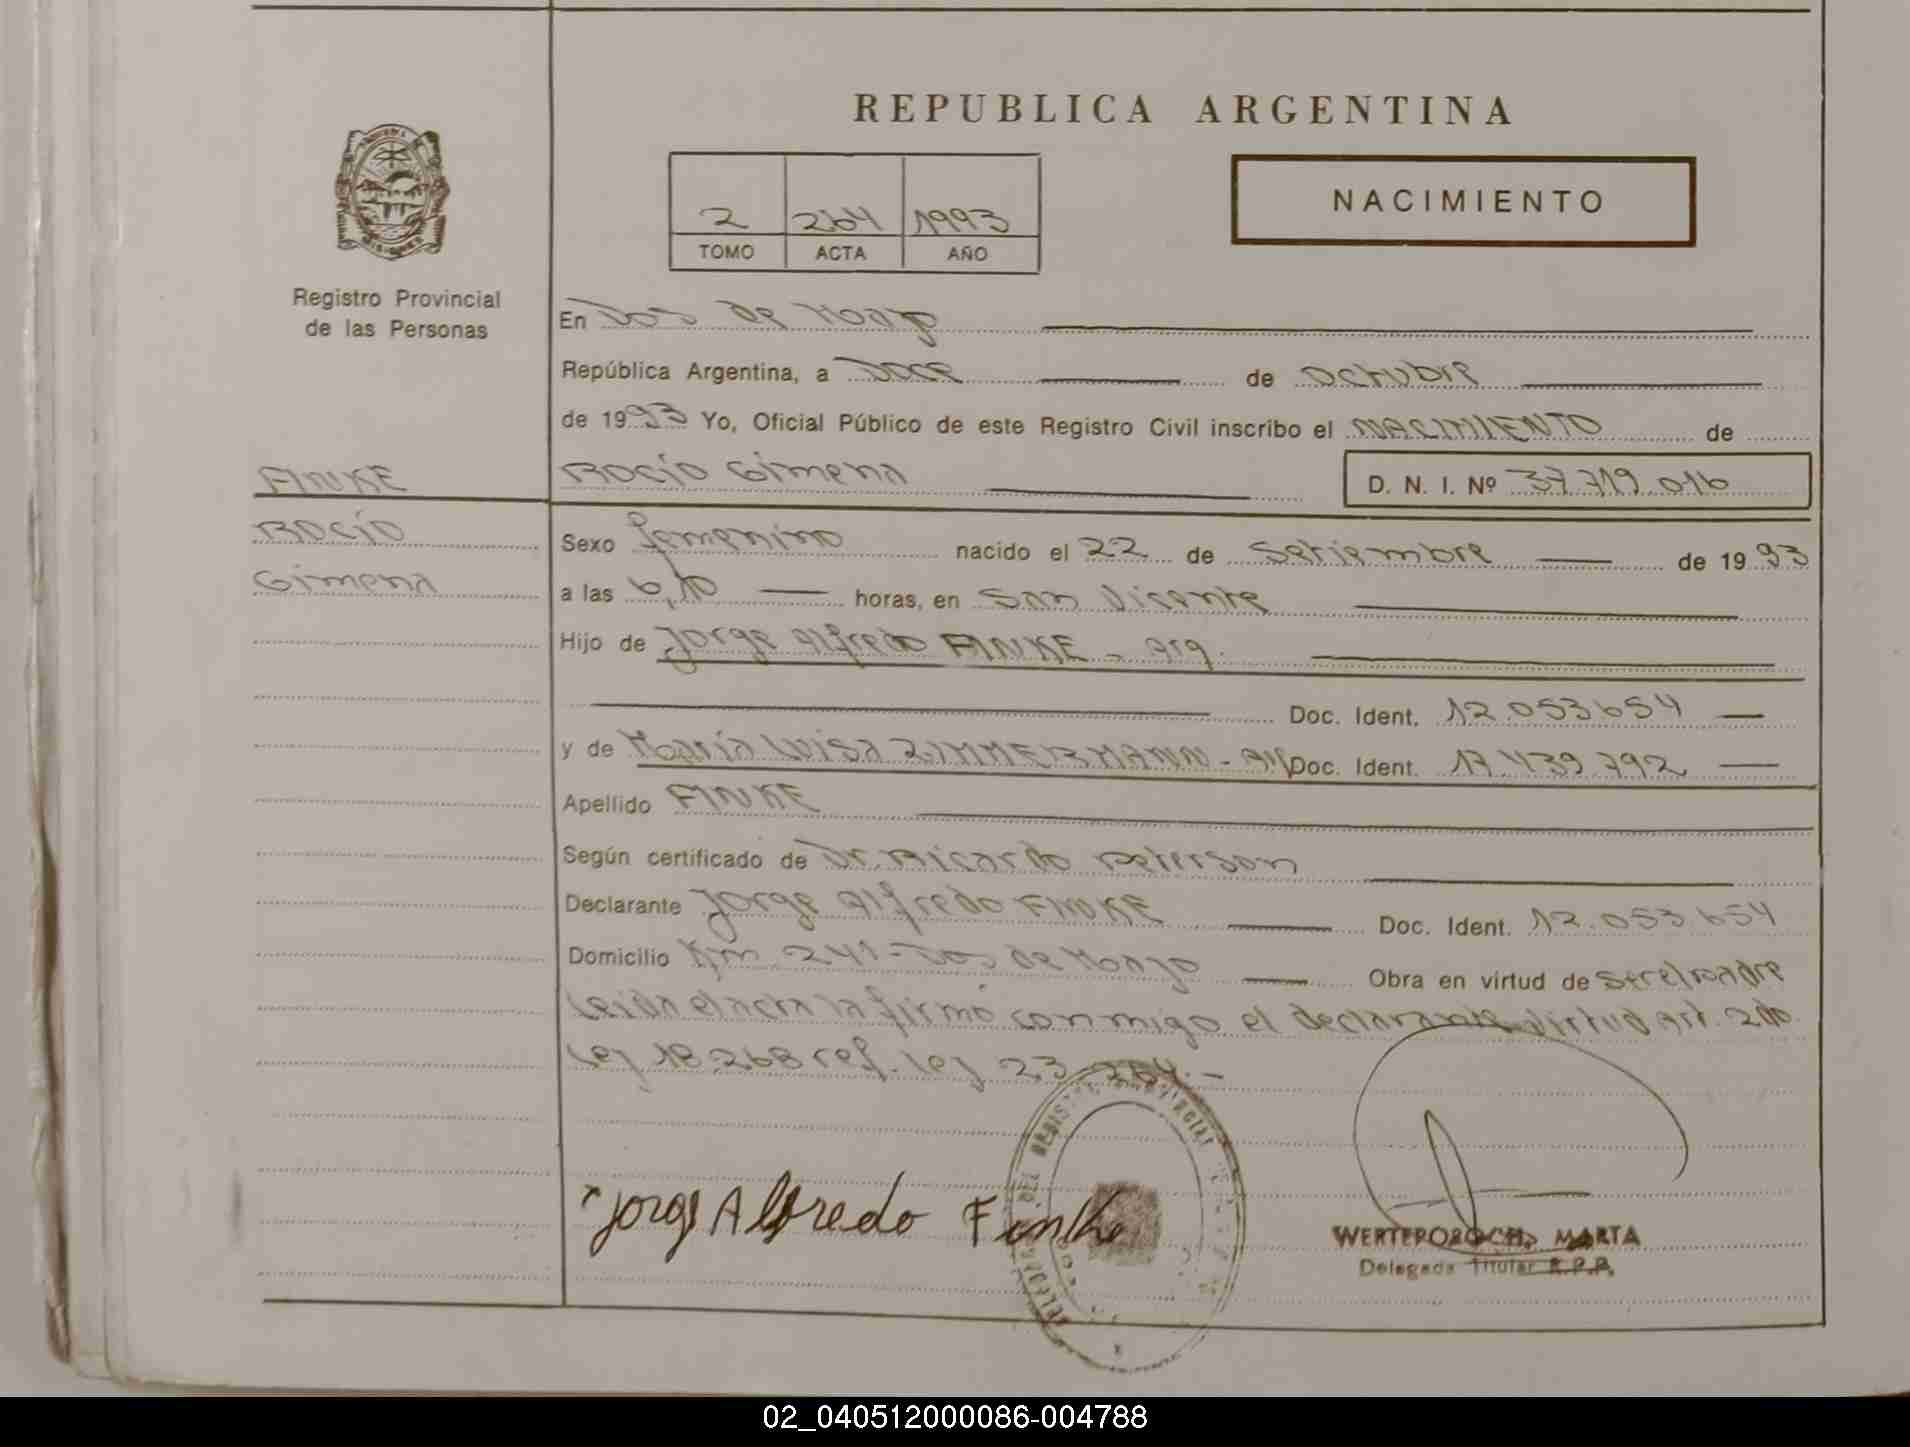 REPUBLICA ARGENTINA
NACIMIENTO
2 264 1993
TOMO ACTA AÑO
Registro Provincial
de las Personas
En Dos de Mayo
República Argentina, a Doce de Octubre
de 1993 Yo, Oficial Público de este Registro Civil inscribo el NACIMIENTO de
FINKE
Rocío Gimena D. N. I. Nº 37.719.016
Rocío
Gimena
Sexo femenino nacido el 22 de Setiembre de 1993
a las 6,10 horas, en San Vicente
Hijo de Jorge Alfredo FINKE - arg.
Doc. Ident. 12.053.654
y de María Luisa ZIMMERMANN - Doc. Ident. 17.439.792
Apellido FINKE
Según certificado de Dr. Ricardo Peterson
Declarante Jorge Alfredo FINKE Doc. Ident. 12.053.654
Domicilio Km. 241 - Dos de Mayo Obra en virtud de ser el padre
Leida el acta la firmó conmigo el declarante virtud art. 2do.
Ley 18.268 ref. Ley 23.264.-
DEL REGISTRO PROVINCIAL
Jorge Alfredo Finke
WERTEPOROCH, MARTA
Delegada Titular R.P.P.
02_040512000086-004788